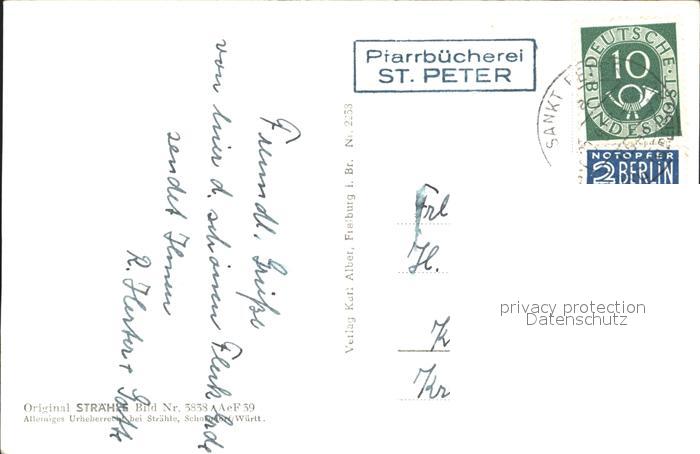 Pfarrbücherei
ST. PETER
DEUTSCHE
10
BUNDESPOST
SANKT PE
NOTOPFER
2 BERLIN
Freundl. Grüße
von hier d. schönen Fleck Erde
sendet Ihnen
R. Herter + Gatte
Verlag Karl Alber, Freiburg i. Br. Nr. 2253
Frl
H.
K
Kr
privacy protection
Datenschutz
Original STRÄHLE Bild Nr. 3838 AeF 59
Alleiniges Urheberrecht bei Strähle, Schorndorf/Württ.